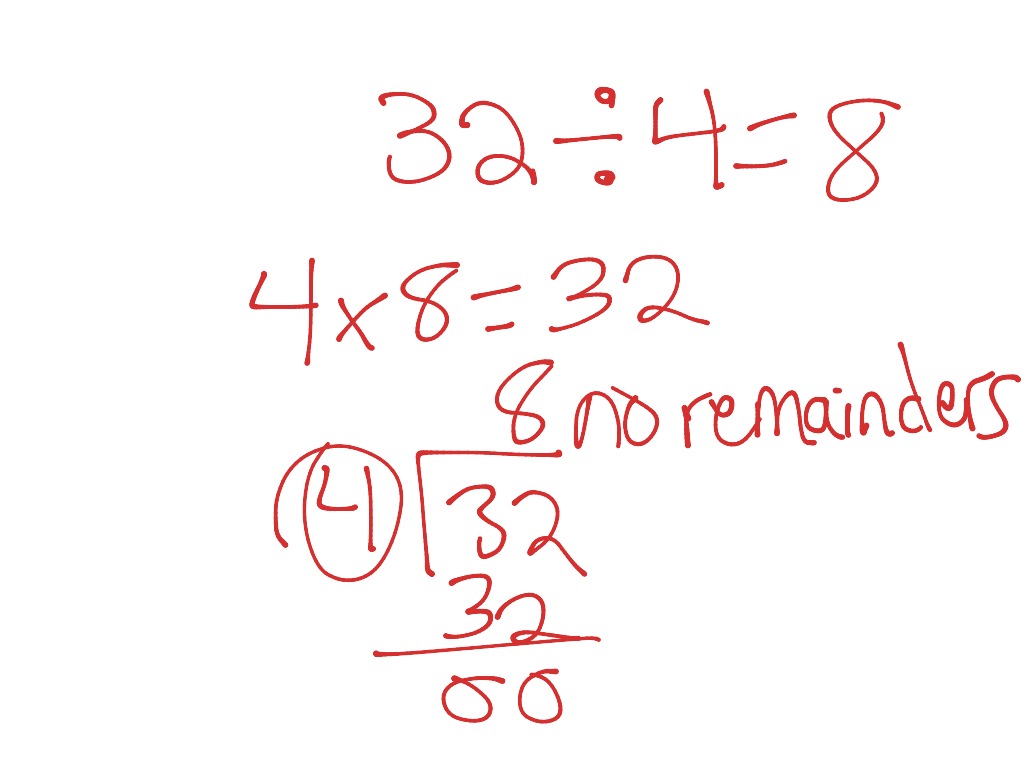 32 ÷ 4 = 8
4 x 8 = 32
8 no remainders
4 32
32
00